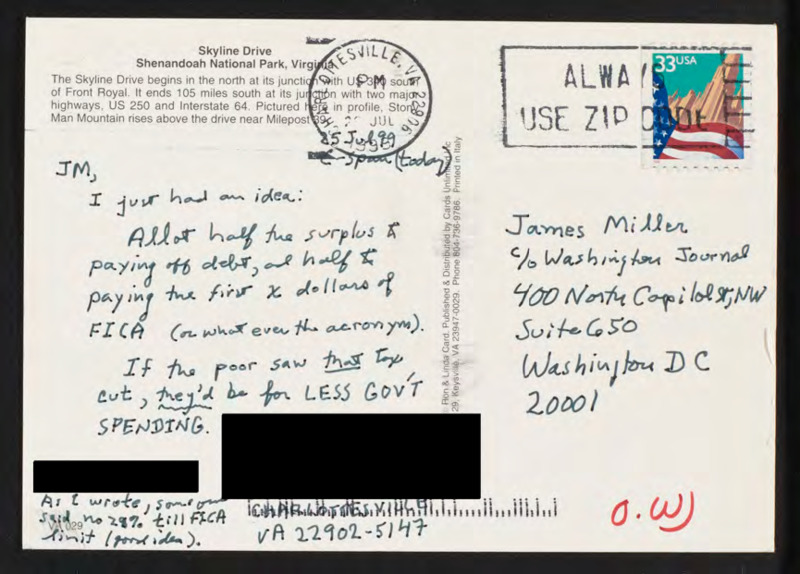 Skyline Drive
Shenandoah National Park, Virginia
The Skyline Drive begins in the north at its junction with US 340 south
of Front Royal. It ends 105 miles south at its junction with two major
highways, US 250 and Interstate 64. Pictured here in profile, Stony
Man Mountain rises above the drive near Milepost 39.
CHARLOTTESVILLE, VA 22906
PM
JUL
1999
25 Jul 99
C-Span (today)
JM,
I just had an idea:
Allot half the surplus to
paying off debt, and half to
paying the first X dollars of
FICA (or what ever the acronym).
If the poor saw that tax
cut, they'd be for LESS GOV'T
SPENDING.
As I wrote, someone
said no 28% till FICA
limit (good idea).
VA 029
CHARLOTTESVILLE
VA 22902-5147
Ron & Linda Card. Published & Distributed by Cards Unlimited
29, Keysville, VA 23947-0029. Phone 804-736-9786. Printed in Italy
ALWAYS
USE ZIP CODE
33USA
James Miller
c/o Washington Journal
400 North Capitol St, NW
Suite 650
Washington DC
20001
O.W)